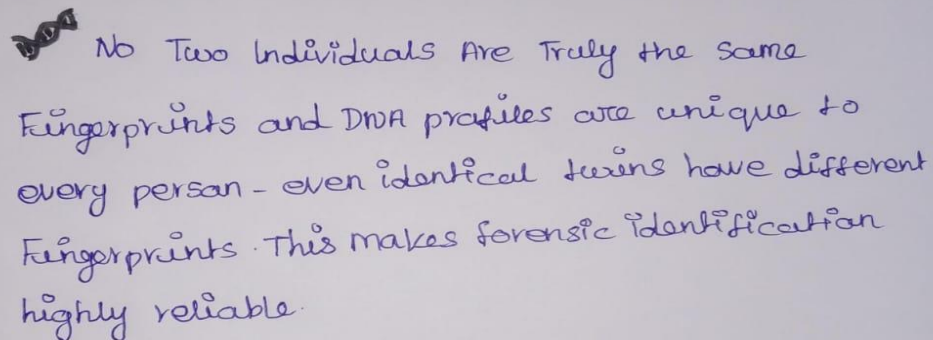 No Two Individuals Are Truly the same
Fingerprints and DNA profiles are unique to
every person - even identical twins have different
Fingerprints. This makes forensic identification
highly reliable.